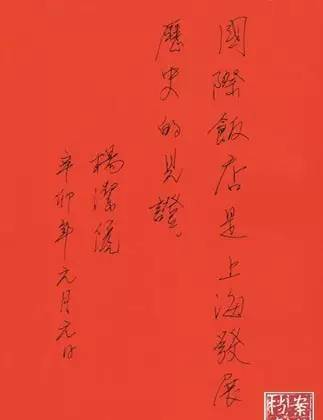 國際飯店是上海發展
歷史的見證。
楊潔篪
辛卯年元月元日
档案